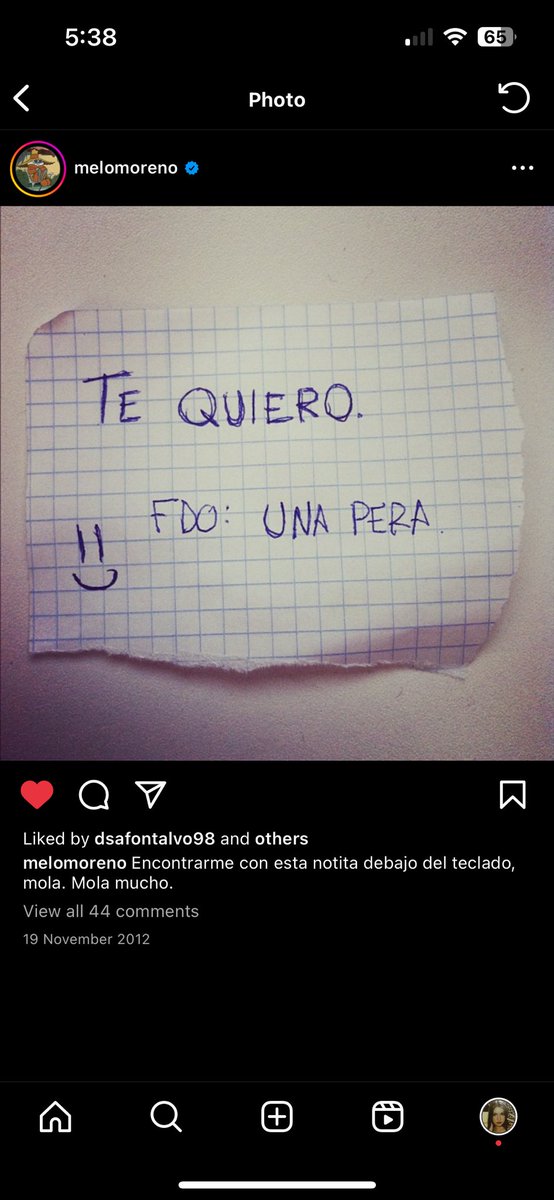 5:38
65
Photo
melomoreno
TE QUIERO.
FDO: UNA PERA.
Liked by dsafontalvo98 and others
melomoreno Encontrarme con esta notita debajo del teclado,
mola. Mola mucho.
View all 44 comments
19 November 2012